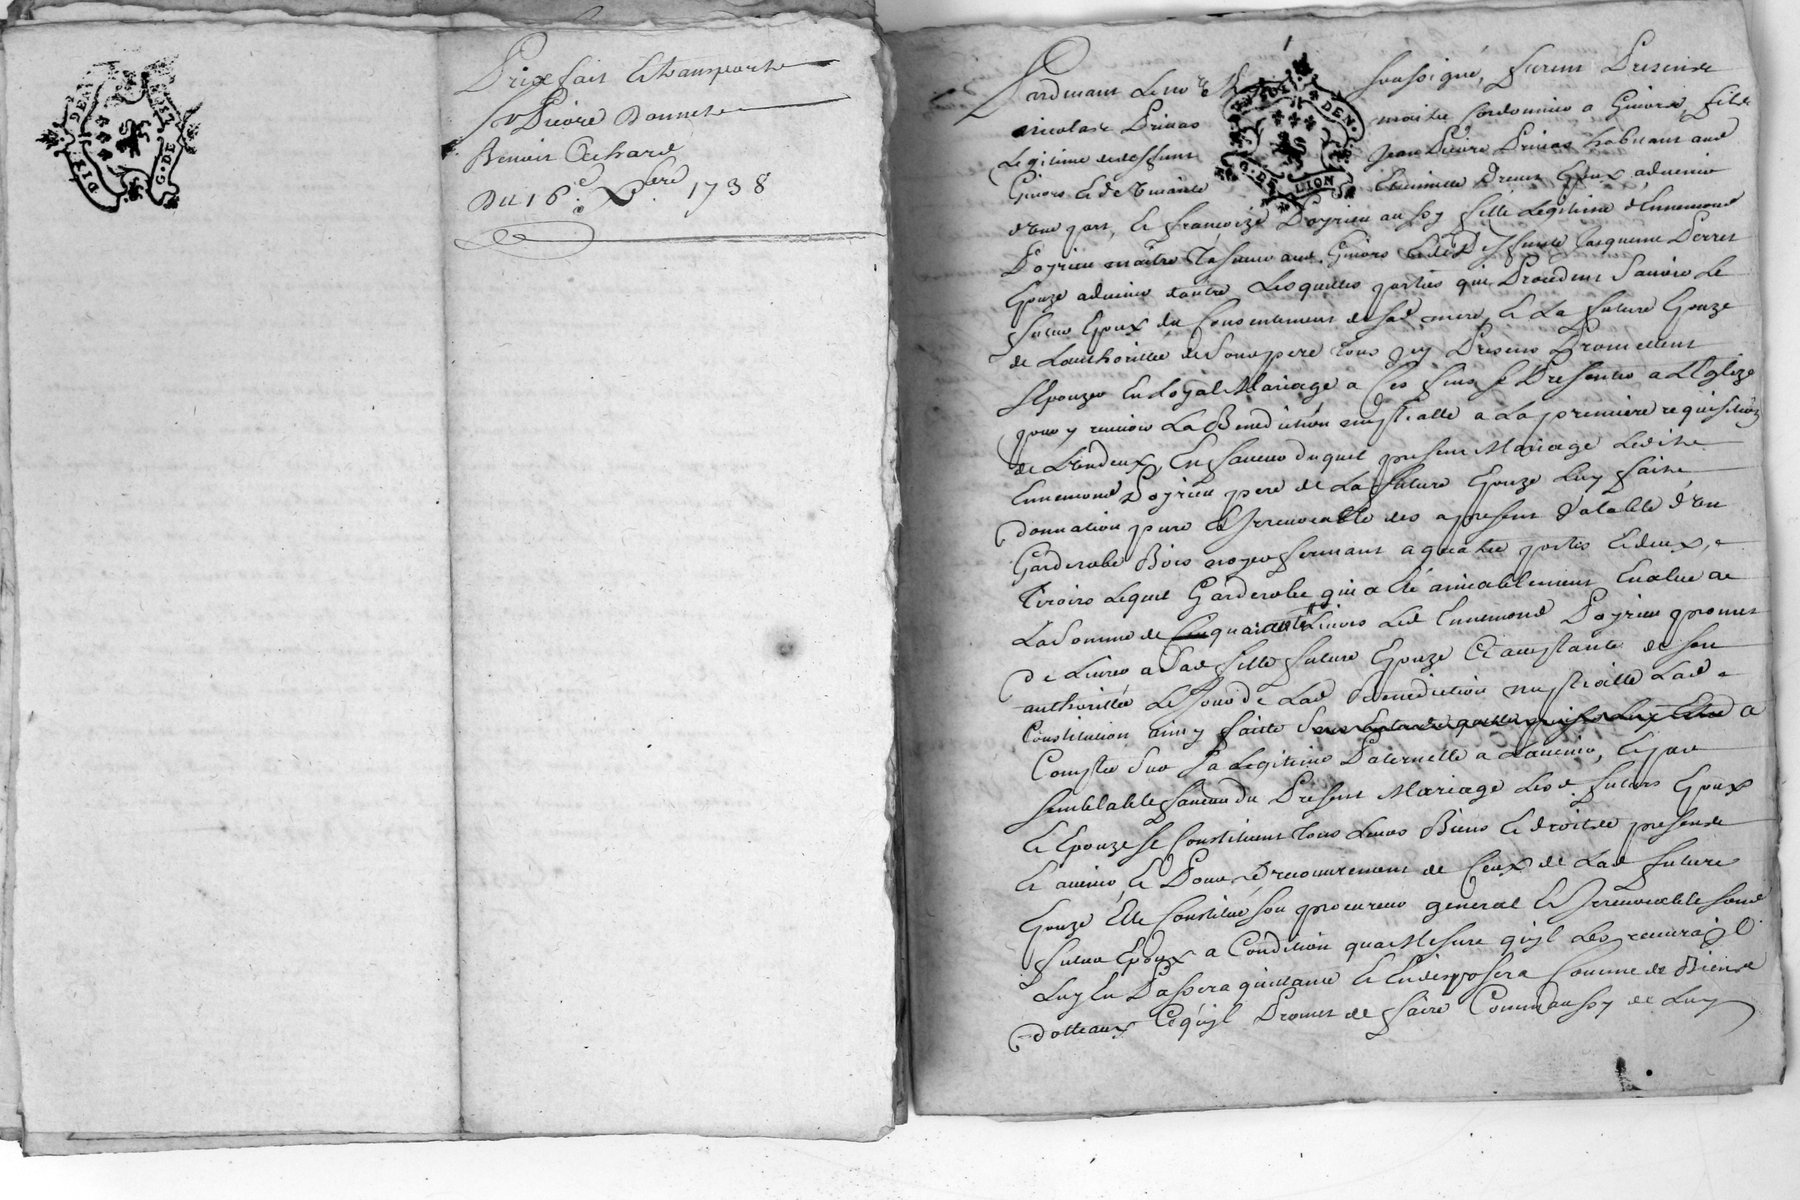 Prixfait Et transport
Sr Pierre Bonnet
Benoit Achard
Du 16e Xbre 1738
DIX DEN
G. DE LI
Pardevant Le no.re R. soussigné, furent Presents
nicolas Privas maitre Cordonnier a Givors, fils
Legitime de deffunt Jean Pierre Privas habitant aud
Givors Et de vivante Epoux advenir
d'une part, Et françoize Poyrieu aussy fille Legitime d'Ennemond
Poyrieu maitre aud. Givors Et de Deffunte Jacqueme Perret
Epouze advenir d'autre Lesquelles parties qui Procedent Savoir Le
futur Epoux du Consentement de sad. mere, Et La future Epouze
de Lauthorité de Son pere tous icy Presens Promettent
s'Epouzer En Loyal Mariage a Ces fins se Presenter a L'Eglize
pour y recevoir La Benediction nuptialle a La premiere requisition
de L'un deux, En faveur duquel present Mariage Ledit
Ennemond Poyrieu pere de La future Epouze Luy fait
donnation pure Et Irrevocable des a present Valable d'un
Garderobe Bois noyer fermant a quatre portes Et deux
Tiroirs Lequel Garderobe qui a été amiablement Evalué a
La Somme de quarante Livres Led Ennemond Poyrieu promet
De Livrer a Sad fille future Epouze acceptante de son
authorité Le Jour de Lad Benediction nuptialle Lad
Constitution ainsy faitte a
Compte Sur Sa Legitime Paternelle a L'avenir, Et par
semblable faveur du Present Mariage Lesd. futurs Epoux
Et Epouze se Constituent tous Leurs Biens Et droits presents
Et avenir, Et Pour Le recouvrement de Ceux de Lad future
Epouze Elle Constitue son procureur general Et Irrevocable sond
futur Epoux a Condition qu'a Mesure qu'jl Les recevra jl
Luy En Passera quittance Et En disposera Comme de Biens
dotteaux Ce qu'jl Promet de faire Comm'aussy de Luy
G. DE LION
DEN.